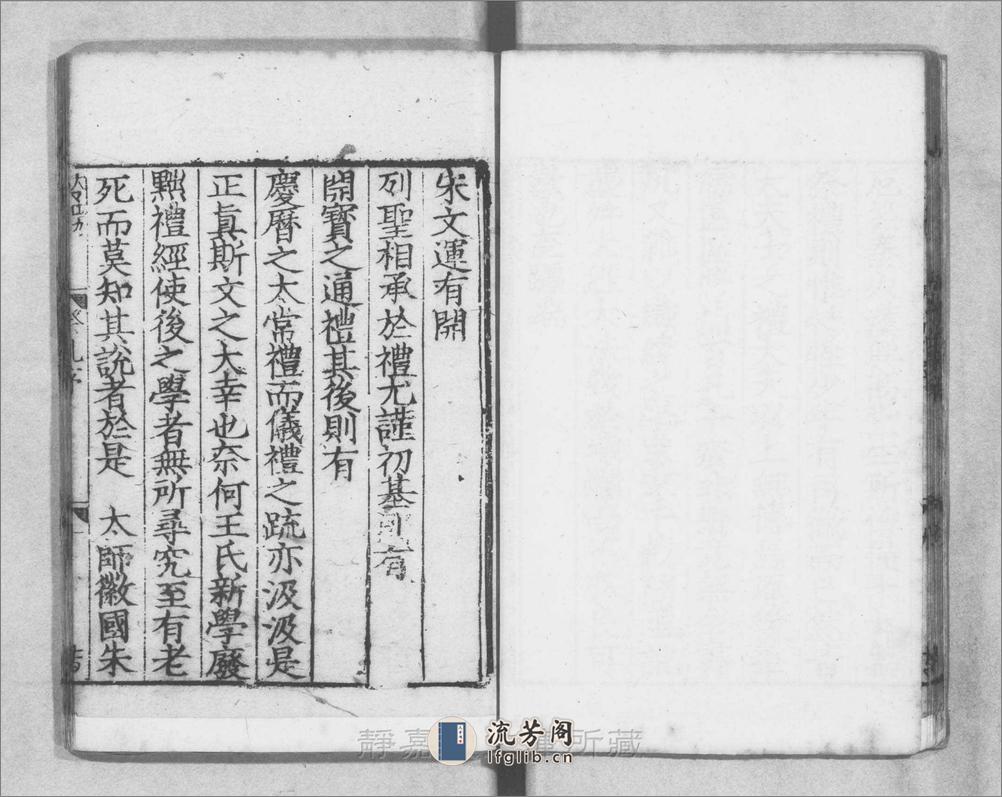 宋文運有開
列聖相承於禮尤謹初基則有
開寶之通禮其後則有
慶曆之太常禮而儀禮之疏亦汲汲是
正眞斯文之大幸也奈何王氏新學廢
黜禮經使後之學者無所尋究至有老
死而莫知其說者於是 太師徽國朱
靜嘉 所藏
流芳阁
lfglib.cn